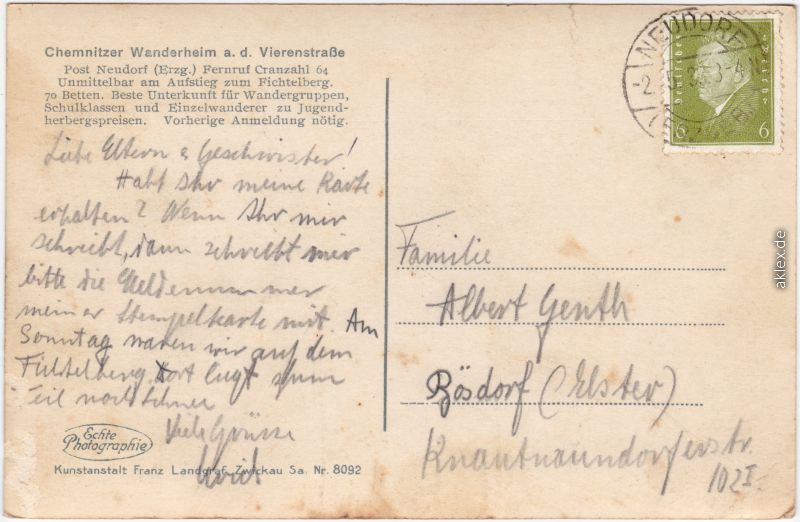 Chemnitzer Wanderheim a. d. Vierenstraße
Post Neudorf (Erzg.) Fernruf Cranzahl 64
Unmittelbar am Aufstieg zum Fichtelberg.
70 Betten. Beste Unterkunft für Wandergruppen,
Schulklassen und Einzelwanderer zu Jugend-
herbergspreisen. Vorherige Anmeldung nötig.
Liebe Eltern & Geschwister!
Habt Ihr meine Karte
erhalten? Wenn Ihr mir
schreibt, dann schreibt mir
bitte die Meldenummer
meiner Stempelkarte mit. Am
Sonntag waren wir auf dem
Fichtelberg. Dort liegt zum
Teil noch Schnee
Viele Grüsse
Echte
Photographie
Kunstanstalt Franz Landgraf, Zwickau Sa. Nr. 8092
NEUDORF
Deutsches Reich
6 6
Familie
Albert Genth
Bösdorf (Elster)
Knautnaundorferstr.
102 I.
aklex.de